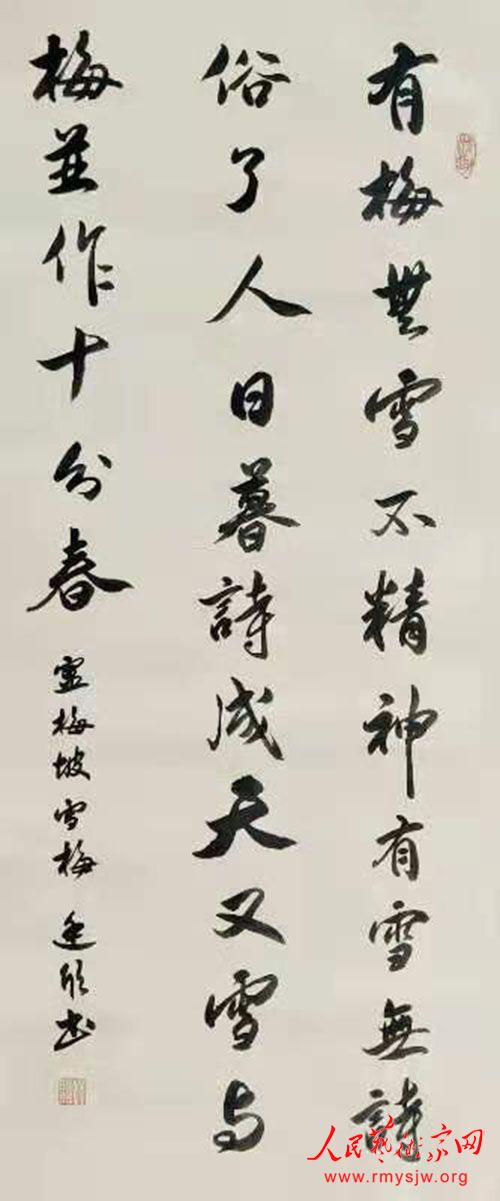 有梅無雪不精神有雪無詩
俗了人日暮詩成天又雪与
梅並作十分春
盧梅坡雪梅
欣书
人民艺术家网
www.rmysjw.org